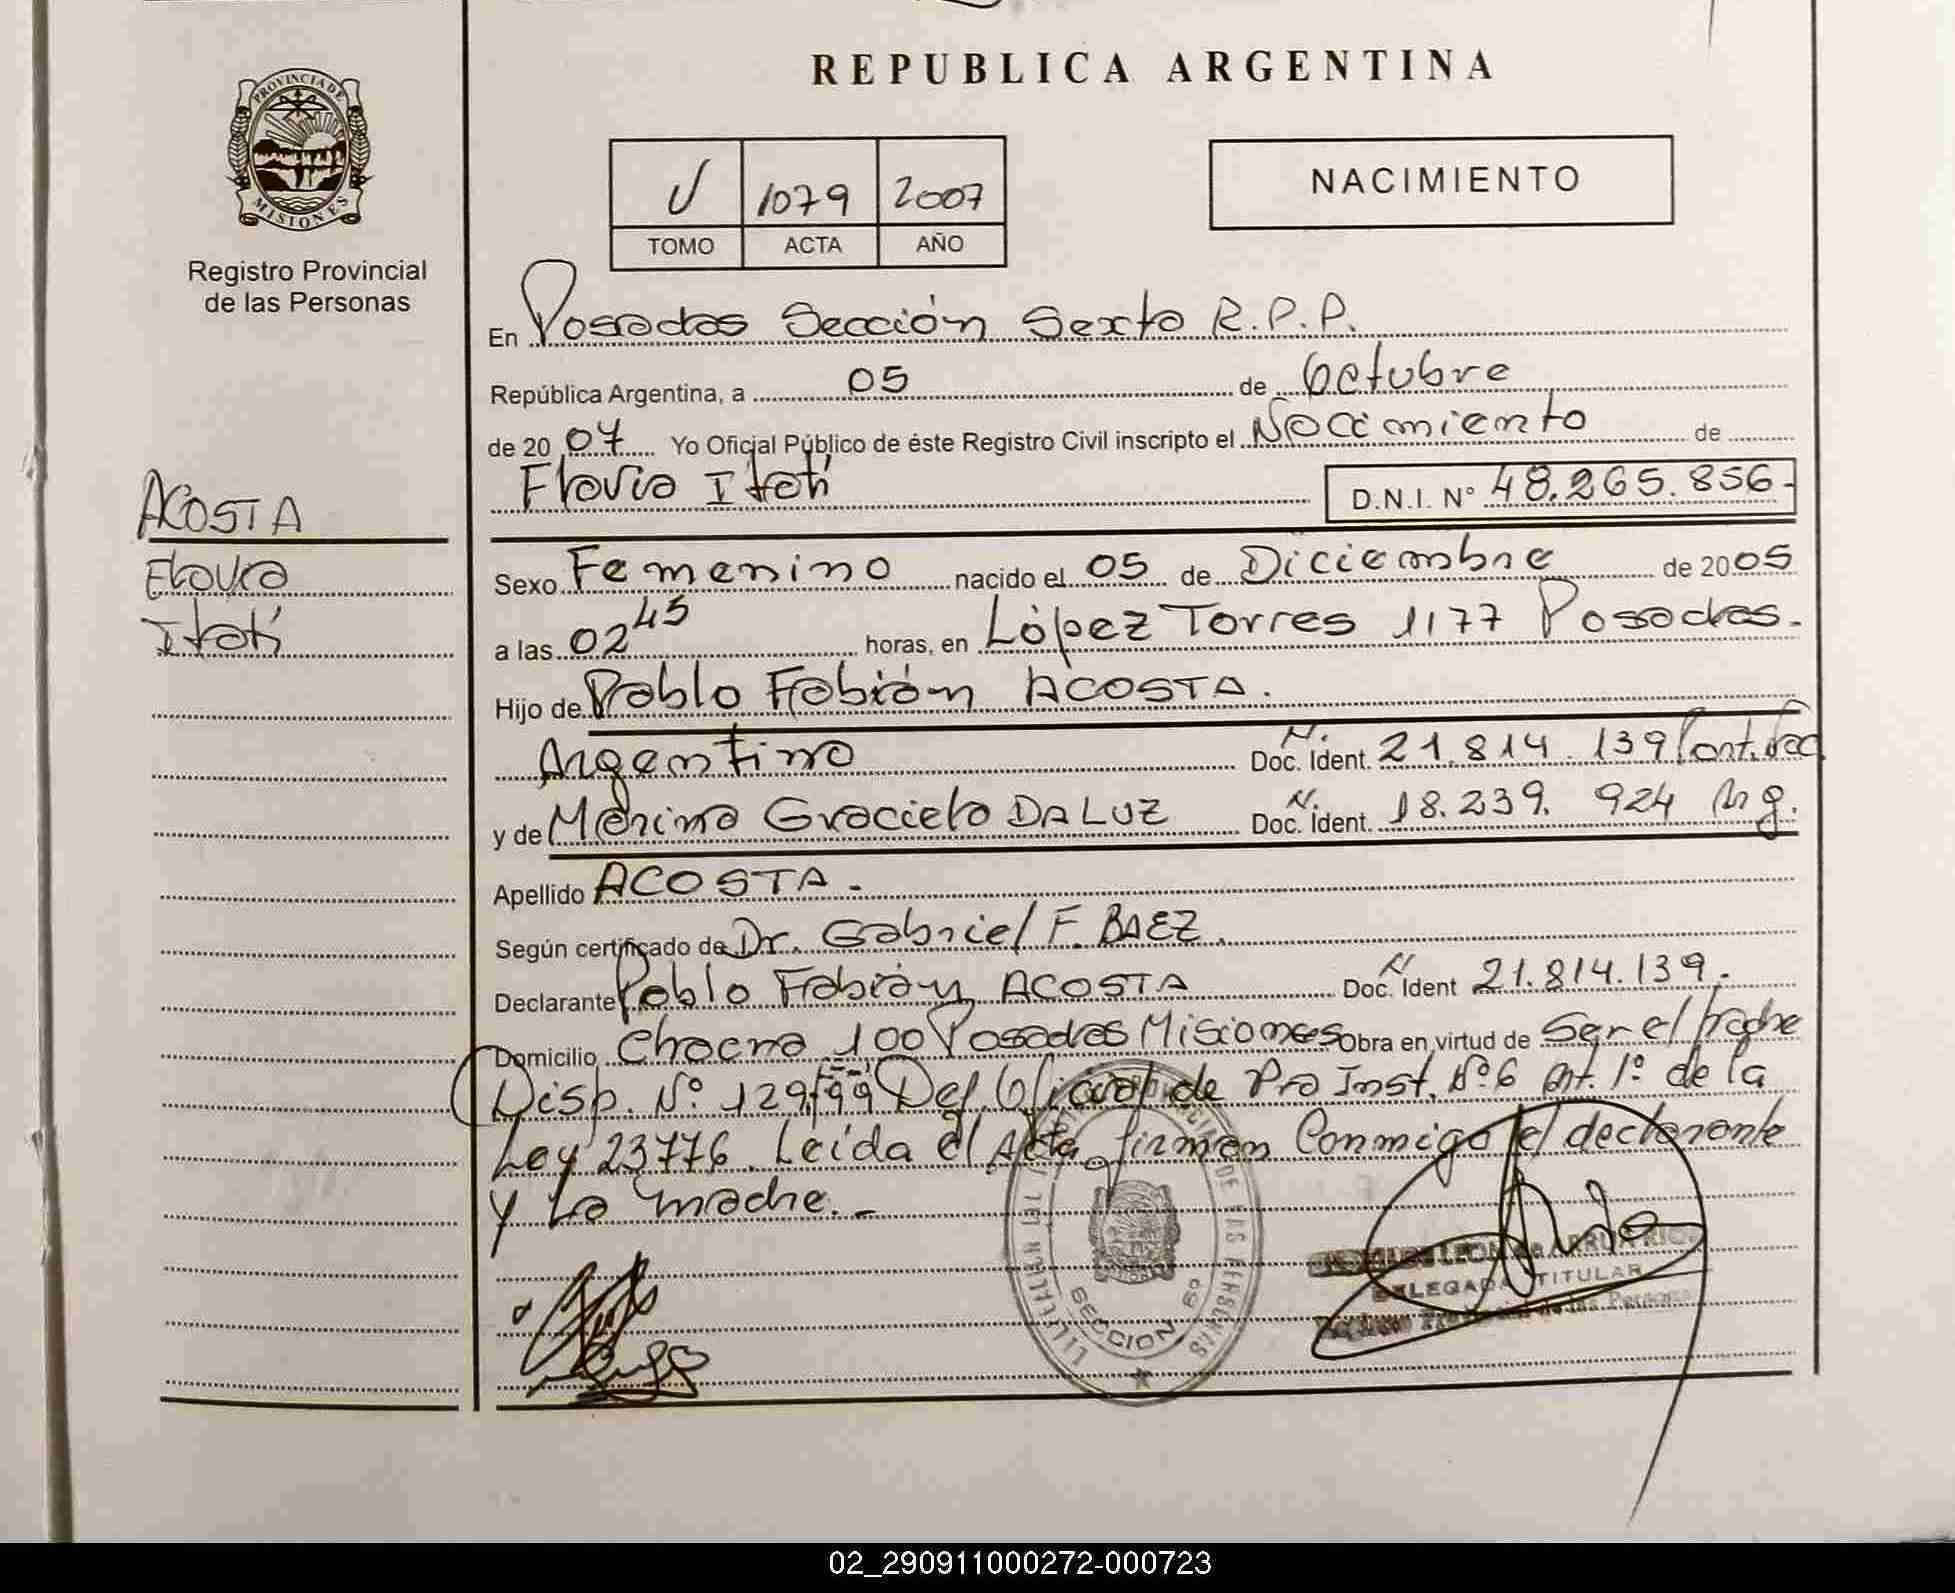 REPUBLICA ARGENTINA
PROVINCIA DE
MISIONES
Registro Provincial
de las Personas
V 1079 2007
TOMO ACTA AÑO
NACIMIENTO
En Posadas Sección Sexta R.P.P.
República Argentina, a 05 de Octubre
de 20 07 Yo Oficial Público de éste Registro Civil inscripto el Nacimiento de
Flavia Itatí D.N.I. N° 48.265.856-
ACOSTA
Flavia
Itatí
Sexo Femenino nacido el 05 de Diciembre de 2005
a las 02 45 horas, en López Torres 1177 Posadas.
Hijo de Pablo Fabián ACOSTA.
Argentino Doc. Ident. N. 21.814.139
y de Graciela DA LUZ Doc. Ident. N. 18.239.924 Arg.
Apellido ACOSTA.-
Según certificado de Dr. Gabriel F. BAEZ.
Declarante Pablo Fabián ACOSTA Doc. Ident N 21.814.139.-
Domicilio Chacra 100 Posadas Misiones Obra en virtud de Ser el padre
Disp. N° 129/99 Del Oficial de Pro Inst. N°6 Art. 1° de la
Ley 23776. Leída el Acta, firman Conmigo el declarante
y La madre.-
SECCION 6º
DELEGADA TITULAR
02_290911000272-000723